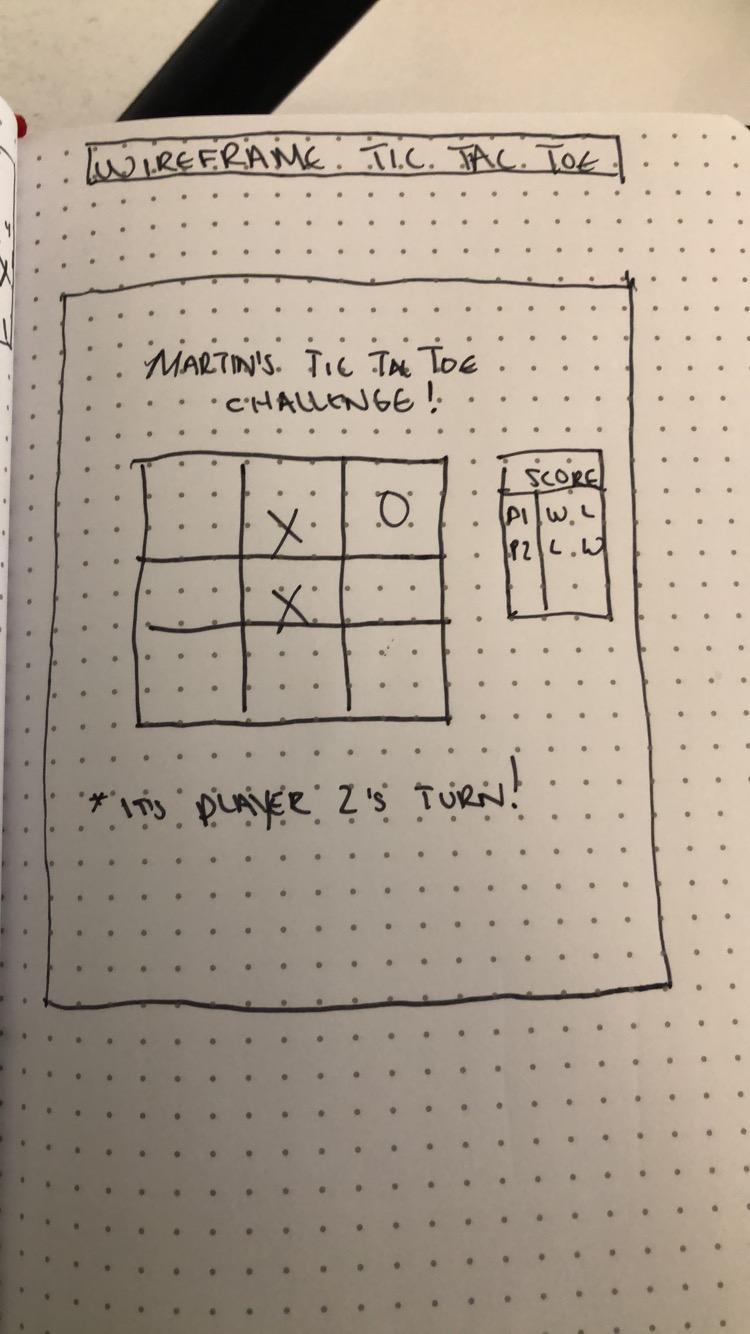 WIREFRAME TIC TAC TOE
MARTIN'S TIC TAC TOE
CHALLENGE!
X
O
X
SCORE
P1 W L
P2 L W
* ITS PLAYER 2's TURN!